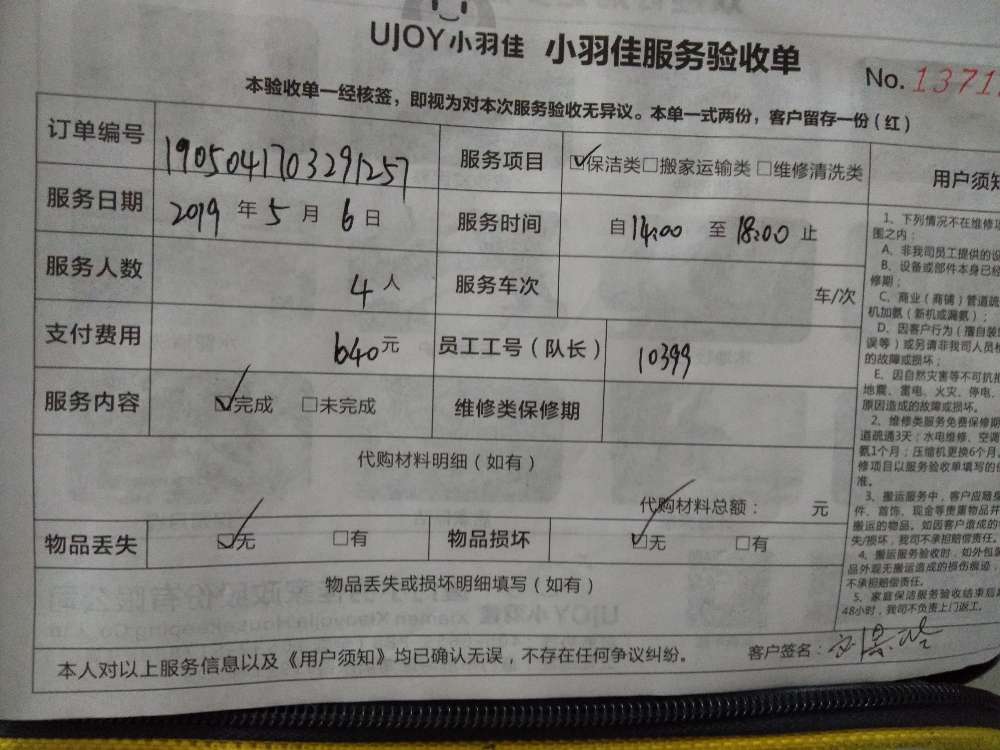 UJOY小羽佳 小羽佳服务验收单
No. 1371
本验收单一经核签，即视为对本次服务验收无异议。本单一式两份，客户留存一份（红）
订单编号 1905041703291257 服务项目 ☑保洁类□搬家运输类□维修清洗类
服务日期 2019年5月6日 服务时间 自14:00至18:00止
服务人数 4人 服务车次 车/次
支付费用 640元 员工工号（队长） 10399
服务内容 ☑完成 □未完成 维修类保修期
代购材料明细（如有）
代购材料总额： 元
物品丢失 ☑无 □有 物品损坏 ☑无 □有
物品丢失或损坏明细填写（如有）
本人对以上服务信息以及《用户须知》均已确认无误，不存在任何争议纠纷。 客户签名：
用户须知
1、下列情况不在维修
围之内：
A、非我司员工提供的设
B、设备或部件本身已经
修期；
C、商业（商铺）管道疏
机加氨（新机或漏氨）；
D、因客户行为（擅自装
误等）或另请非我司人员
的故障或损坏；
E、因自然灾害等不可抗
地震、雷电、火灾、停电、
原因造成的故障或损坏。
2、维修类服务免费保修期
道疏通3天；水电维修、空调
氨1个月；压缩机更换6个月
修项目以服务验收单填写的
准。
3、搬运服务中，客户应随身
件、首饰、现金等贵重物品并
搬运的物品。如因客户造成的
失/损坏，我司不承担赔偿责任。
4、搬运服务验收时，如外包装
品外观无搬运造成的损伤痕迹，
不承担赔偿责任。
5、家庭保洁服务验收结束后
48小时，我司不负责上门返工。